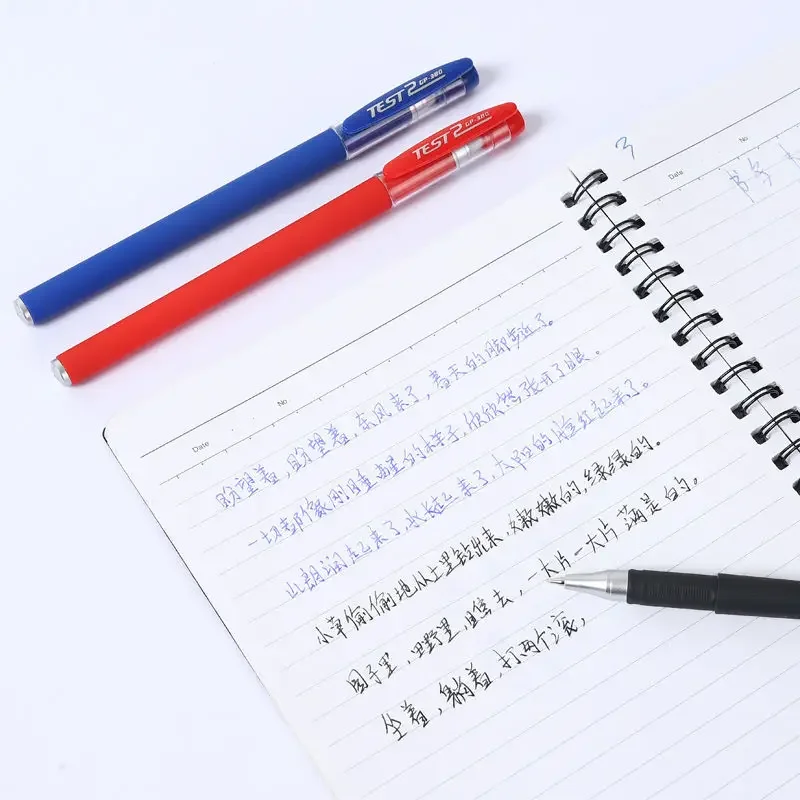 TEST 2 GP-380
TEST 2 GP-380
3
Date
No
Date
No
盼望着，盼望着，东风来了，春天的脚步近了。
一切都像刚睡醒的样子，欣欣然张开了眼。
山朗润起来了，水涨起来了，太阳的脸红起来了。
小草偷偷地从土里钻出来，嫩嫩的，绿绿的。
园子里，田野里，瞧去，一大片一大片满是的。
坐着，躺着，打两个滚，